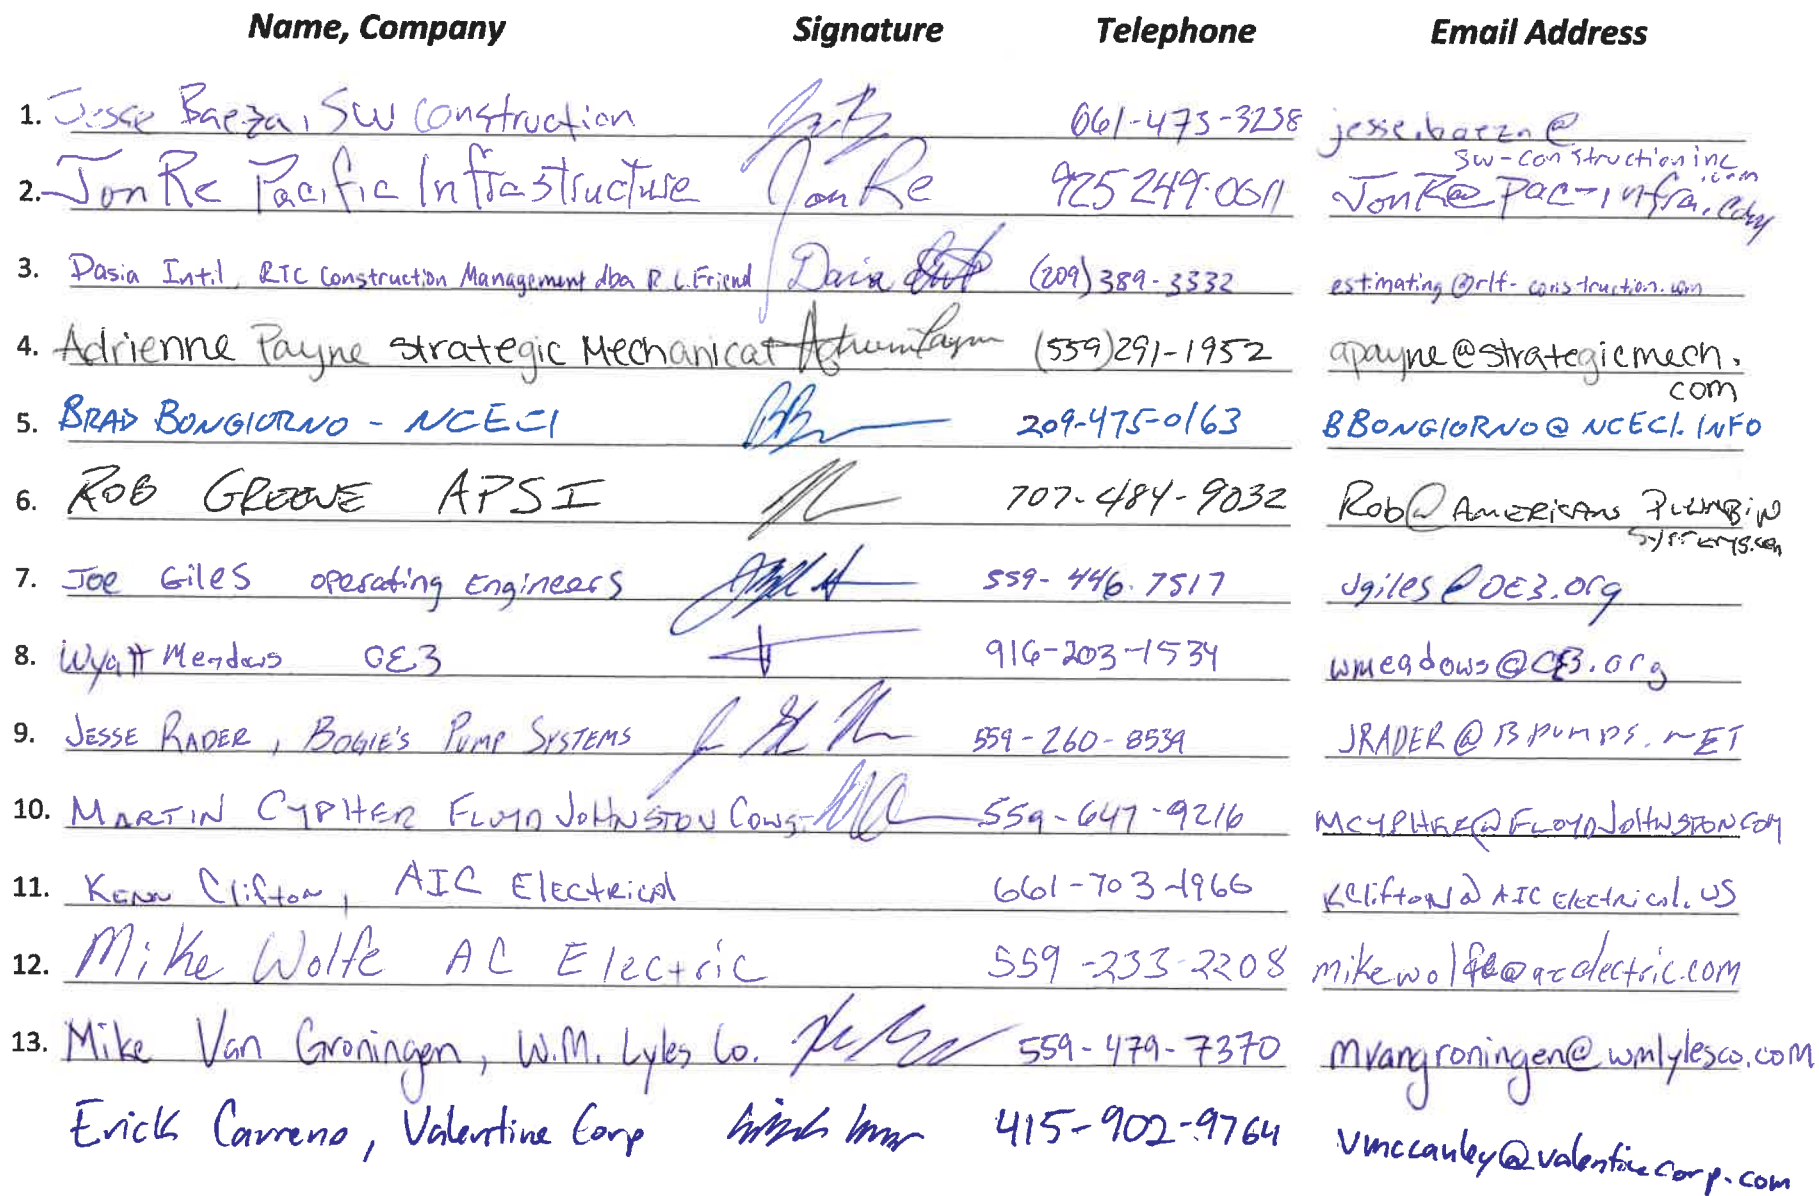 Name, Company Signature Telephone Email Address
1. Jesse Baeza, SW Construction 661-473-3238 jesse.baeza@
sw-constructioninc.com
2. Jon Re Pacific Infrastructure Jon Re 925 249-0611 JonR@pac-infra.com
3. Dasia Intil, RTC Construction Management dba R L Friend (209) 389-3332 estimating@rlf-construction.com
4. Adrienne Payne Strategic Mechanical (559) 291-1952 apayne@strategicmech.
com
5. BRAD BONGIORNO - NCECI 209-475-0163 BBONGIORNO@NCECI.INFO
6. ROB GREENE APSI 707-484-9032 Rob@AMERICANPLUMBIN
SYSTEMS.com
7. Joe Giles operating Engineers 559-446.7517 Jgiles@OE3.org
8. Wyatt Meadows OE3 916-203-1534 wmeadows@OE3.org
9. JESSE RADER, BOGIE'S PUMP SYSTEMS 559-260-8539 JRADER@BPUMPS.NET
10. MARTIN CYPHER FLOYD JOHNSTON CONS. 559-647-9216 MCYPHER@FLOYDJOHNSTON.COM
11. KENN Clifton, AIC Electrical 661-703-1966 KClifton@AICElectrical.US
12. Mike Wolfe AC Electric 559-233-2208 mikewolfe@acelectric.com
13. Mike Van Groningen, W.M. Lyles Co. 559-479-7370 mvangroningen@wmlylesco.com
Erick Carreno, Valentine Corp 415-902-9764 vmccauley@valentinecorp.com